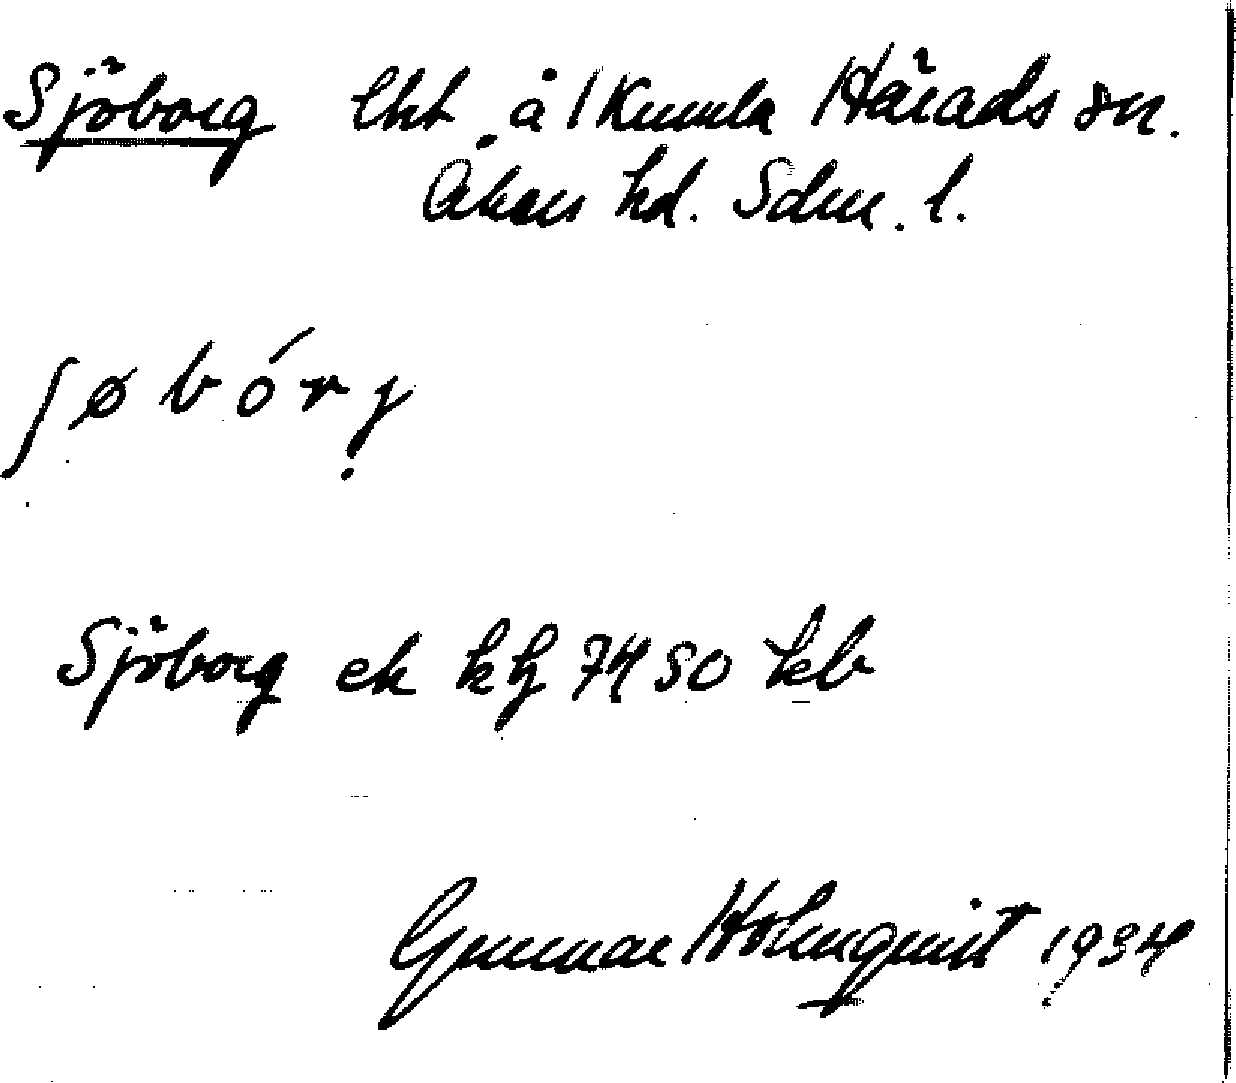 Sjöborg lht å 1 Kumla Härads sn.
Åkers hd. Sdm. l.
ʃøbórj̣
Sjöborg ek kh 74 50 kb
Gunnar Holmquist 1934